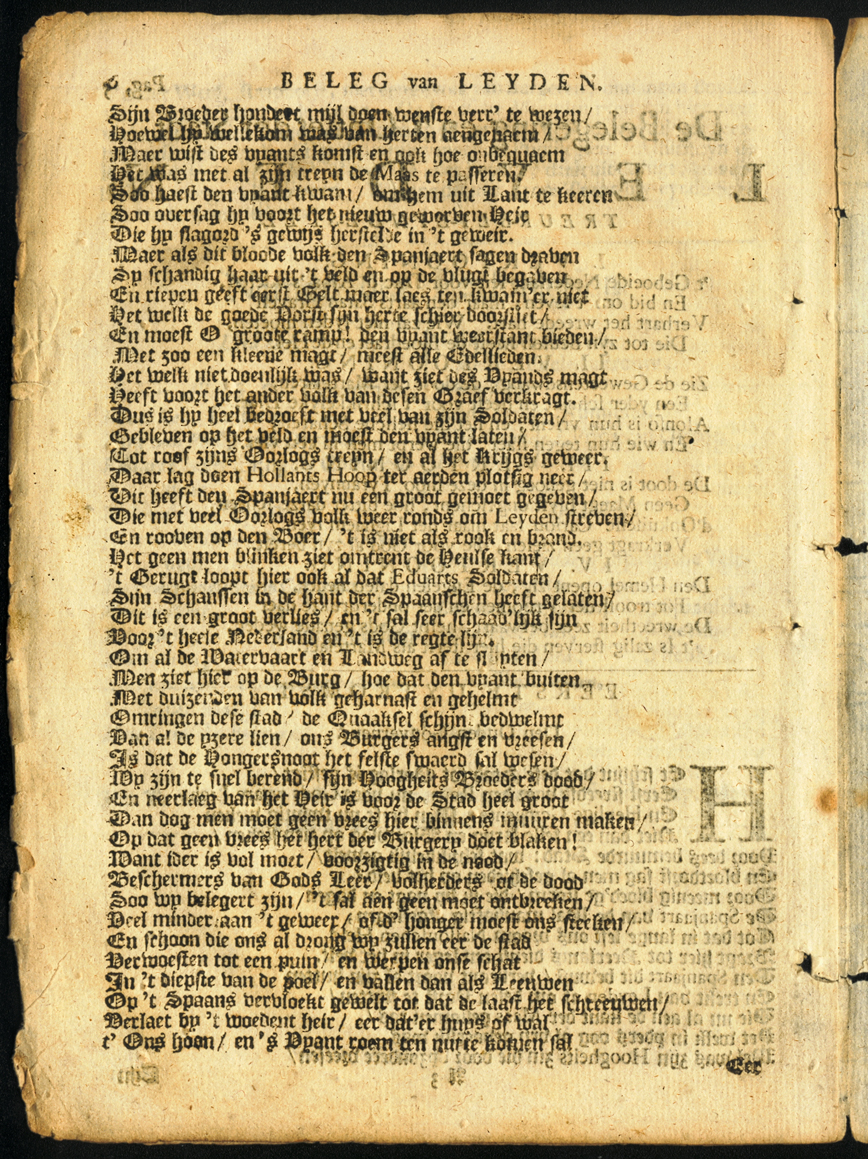 BELEG van LEYDEN.
Sijn Broeder hondert mijl doen wenste verr' te wezen /
Hoewel hy wellekom was van herten aengenaem /
Maer wist des vyants komst en ook hoe onbequaem
Het was met al zijn treyn de Maes te passeren.
Soo haest den vyant kwam / om hem uit Lant te keeren
Soo oversag hy voort het nieuw geworven Heir
Die hy slagord 's gewijs herstelde in 't geweir.
Maer als dit bloode volk den Spanjaert sagen draven
Sy schandig haar uit 't veld en op de vlugt begaven
En riepen geeft eerst Gelt maer laes ten kwam'er niet
Het welk de goede Vorst sijn herte schier doorstiet /
En moest O groote ramp! den vyant weerstant bieden /
Met zoo een kleene magt / meest alle Edellieden.
Het welk niet doenlijk was / want ziet des Vyands magt
Heeft voort het ander volk van desen Graef verkragt.
Dus is hy heel bedroeft met veel van zijn Soldaten /
Gebleven op het veld en moest den vyant laten /
Tot roof zijns Oorlogs treyn / en al het Krijgs geweer.
Daar lag doen Hollants Hoop ter aerden plotsig neer /
Dit heeft den Spanjaert nu een groot gemoet gegeven /
Die met veel Oorlogs volk weer ronds om Leyden streven /
En rooven op den Boer / 't is niet als rook en brand.
Het geen men blinken ziet omtrent de Heulse kant /
't Gerugt loopt hier ook al dat Eduarts Soldaten /
Sijn Schanssen in de hant der Spaanschen heeft gelaten /
Dit is een groot verlies / en 't sal seer schaad'lijk sijn
Voor 't heele Nederland en 't is de regte lijn.
Om al de Watervaart en Landweg af te sluyten /
Men ziet hier op de Burg / hoe dat den vyant buiten
Met duizenden van volk geharnast en gehelmt
Omringen dese stad / de Quaaksel schijnt bedwelmt
Dan al de yzere lien / ons Burgers angst en vreesen /
Is dat de Hongersnoot het felste swaerd sal wesen /
Wy zijn te snel berend / sijn Hoogheits Broeders dood /
En neerlaeg van het Heir is voor de Stad heel groot
Dan dog men moet geen vrees hier binnens muuren maken /
Op dat geen vrees het hert der Burgery doet blaken!
Want ider is vol moet / voorzigtig in de nood /
Beschermers van Gods Leer / volherders tot de dood
Soo wy belegert zijn / 't sal aen geen moet ontbreeken /
Veel minder aan 't geweer / of d' honger moest ons steeken /
En schoon die ons al drong wy zullen eer de stad
Verwoesten tot een puin / en werpen onse schat
In 't diepste van de poel / en vallen dan als Leeuwen
Op 't Spaans vervloekt gewelt tot dat de laast het schreeuwen /
Verlaet by 't woedent heir / eer dat'er huys of wal
t' Ons hoon / en 's Vyant roem ten nutte komen sal
Eer